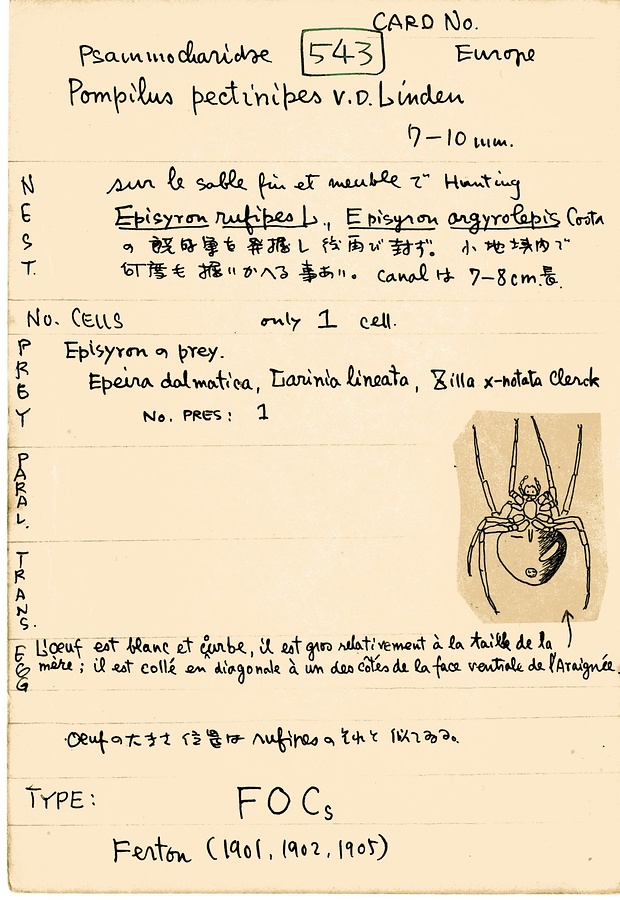 CARD No.
Psammocharidae 543 Europe
Pompilus pectinipes v.D.Linden
7-10 mm.
NEST. sur le sable fin et meuble で Hunting
Episyron rufipes L., Episyron argyrolepis Costa
の 既存巣を発掘し後再び封ず。小地域内で
何度も掘いかへる事あい。canal は 7-8cm長.
No. CELLS only 1 cell.
PREY Episyron の prey.
Epeira dalmatica, Larinia lineata, Zilla x-notata Clerck
No. PRES: 1
PARAL.
TRANS.
EGG L'œuf est blanc et courbe, il est gros relativement à la taille de la
mère; il est collé en diagonale à un des côtés de la face ventrale de l'Araignée.
Oeufの大きさ 位置は rufipes の それと 似てゐる。
TYPE: FOCs
Ferton (1901, 1902, 1905)